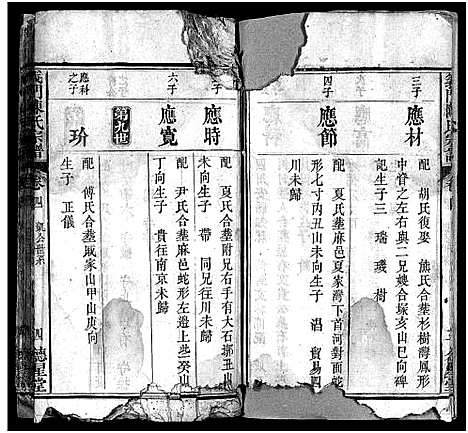 三子
應材
配 胡氏復娶 熊氏合塟杉樹灣鳳形
中脊之左右與二兄嫂合塚亥山巳向碑
記生子三 瑞 璣 樹
四子
應節
配 夏氏塟麻邑夏家灣下首河對面
形七寸丙丑山未向生子 湻 貿易四
川未歸
六子
應時
配 夏氏合塟附兄右手有大石擲丑山
未向生子 帶 同兄往川未歸
應寬
配 尹氏合塟麻邑蛇形左邊上些癸山
丁向生子 貴往南京未歸
第九世
應科之子
玠
配 傅氏合塟戚家山甲山庚向
生子 正儀
義門陳氏宗譜
卷四
四 德星堂